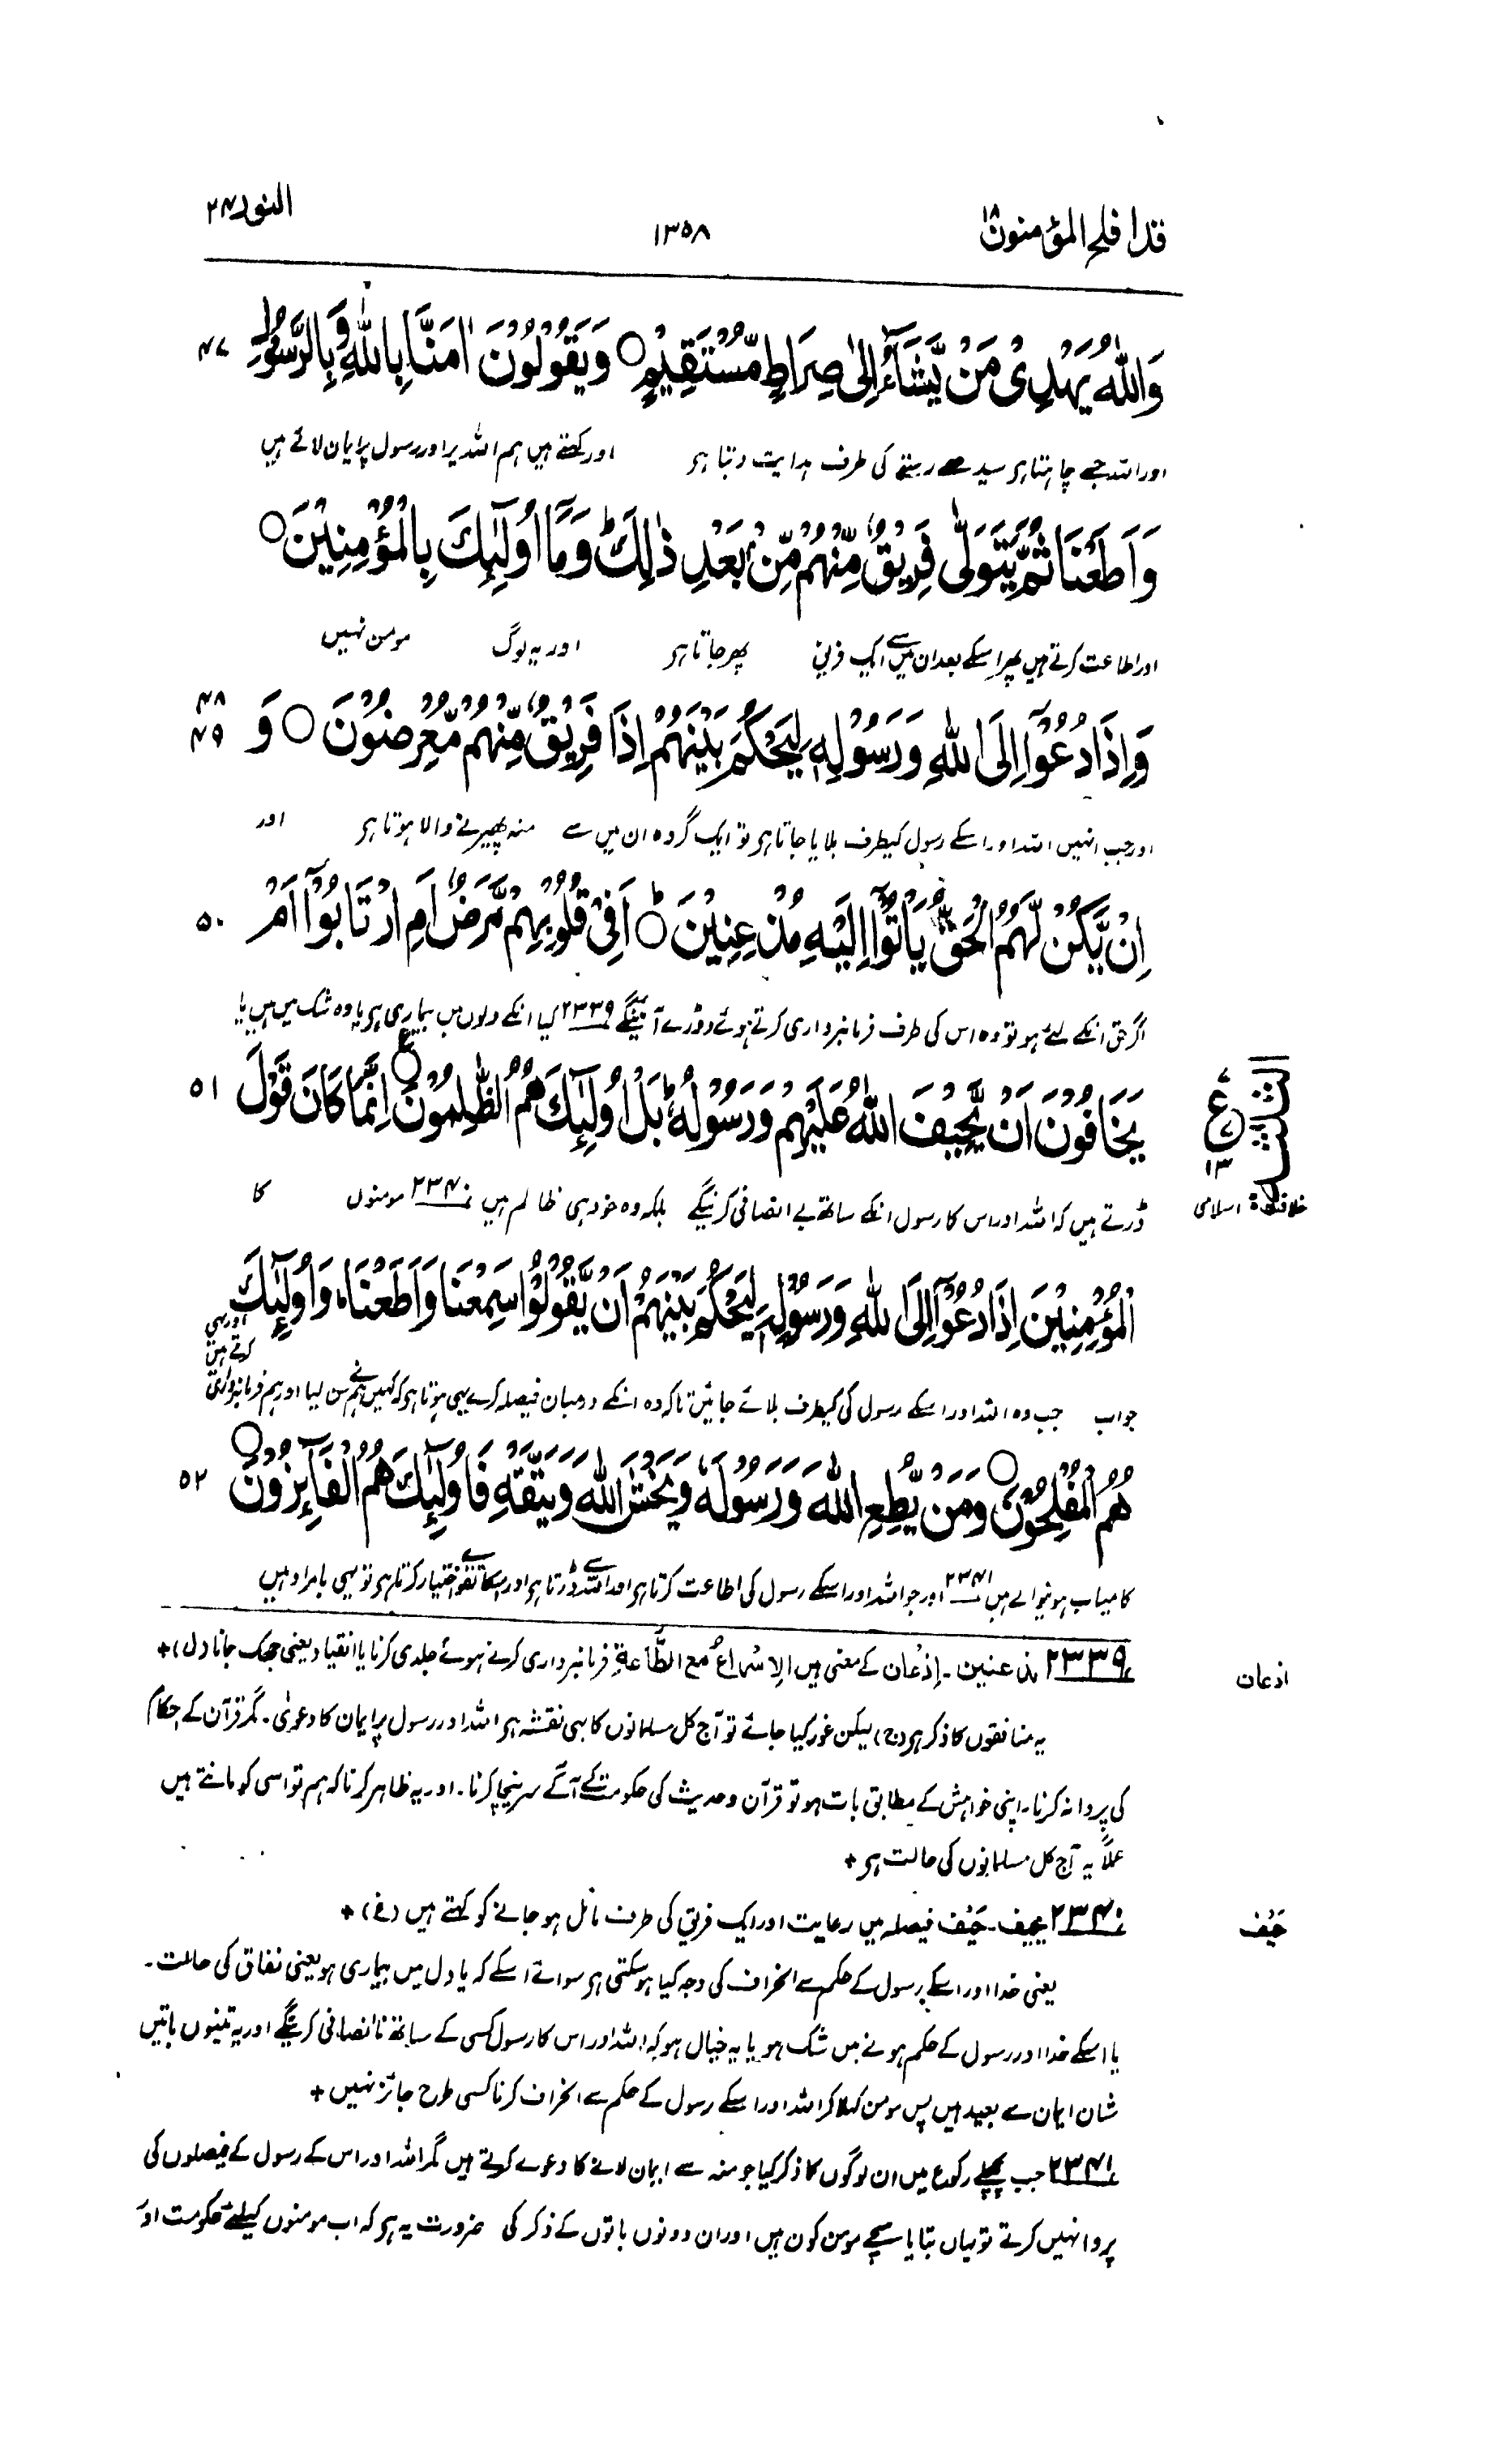 قد افلح المؤمنون ۱۸ ۱۳۵۸ النور ۲۴
وَاللّٰهُ يَهْدِيْ مَنْ يَّشَآءُ اِلٰى صِرَاطٍ مُّسْتَقِيْمٍ ○ وَيَقُوْلُوْنَ اٰمَنَّا بِاللّٰهِ وَبِالرَّسُوْلِ ۴۷
اور اللہ جسے چاہتا ہر سیدھے رستے کی طرف ہدایت دیتا ہر اور کہتے ہیں ہم اللہ پر اور رسول پر ایمان لائے ہیں
وَاَطَعْنَا ثُمَّ يَتَوَلّٰى فَرِيْقٌ مِّنْهُمْ مِّنْۢ بَعْدِ ذٰلِكَ ؕ وَمَآ اُولٰٓئِكَ بِالْمُؤْمِنِيْنَ ○
اور اطاعت کرتے ہیں پھر اسکے بعد ان میں سے ایک فریق پھر جاتا ہر اور یہ لوگ مومن نہیں
وَاِذَا دُعُوْٓا اِلَى اللّٰهِ وَرَسُوْلِهٖ لِيَحْكُمَ بَيْنَهُمْ اِذَا فَرِيْقٌ مِّنْهُمْ مُّعْرِضُوْنَ ○ وَ ۴۸ ۴۹
اور جب انہیں اللہ اور اسکے رسول کیطرف بلایا جاتا ہر تو ایک گروہ ان میں سے منہ پھیرنے والا ہوتا ہر اور
اِنْ يَّكُنْ لَّهُمُ الْحَقُّ يَاْتُوْٓا اِلَيْهِ مُذْعِنِيْنَ ○ؕ اَفِيْ قُلُوْبِهِمْ مَّرَضٌ اَمِ ارْتَابُوْٓا اَمْ ۵۰
اگر حق انکے لئے ہو تو وہ اس کی طرف فرمانبرداری کرتے ہوئے دوڑے آئینگے ۲۳۳۹ کیا انکے دلوں میں بیماری ہر یا وہ شک میں ہیں یا
يَخَافُوْنَ اَنْ يَّحِيْفَ اللّٰهُ عَلَيْهِمْ وَرَسُوْلُهٗ ؕ بَلْ اُولٰٓئِكَ هُمُ الظّٰلِمُوْنَ ○ع اِنَّمَا كَانَ قَوْلَ ۵۱
ع ۱۳
ڈرتے ہیں کہ اللہ اور اس کا رسول انکے ساتھ بے انصافی کرینگے بلکہ وہ خود ہی ظالم ہیں ۲۳۴۰ مومنوں کا
خلافت اسلامی
الْمُؤْمِنِيْنَ اِذَا دُعُوْٓا اِلَى اللّٰهِ وَرَسُوْلِهٖ لِيَحْكُمَ بَيْنَهُمْ اَنْ يَّقُوْلُوْا سَمِعْنَا وَاَطَعْنَا ؕ وَاُولٰٓئِكَ
جواب جب وہ اللہ اور اسکے رسول کی کیطرف بلائے جائیں تاکہ وہ انکے درمیان فیصلہ کرے یہی ہوتا ہر کہ کہیں ہم نے سن لیا اور ہم فرمانبرداری کرتے ہیں اور یہی
هُمُ الْمُفْلِحُوْنَ ○ وَمَنْ يُّطِعِ اللّٰهَ وَرَسُوْلَهٗ وَيَخْشَ اللّٰهَ وَيَتَّقْهِ فَاُولٰٓئِكَ هُمُ الْفَآئِزُوْنَ ○ ۵۲
کامیاب ہونیوالے ہیں ۲۳۴۱ اور جو اللہ اور اسکے رسول کی اطاعت کرتا ہر اور اللہ سے ڈرتا ہر اور اسکا تقوٰے اختیار کرتا ہر تو یہی بامراد ہیں
۲۳۳۹ مذعنین۔ اِذْعَان کے معنی ہیں الاِسْرَاعُ مع الطَّاعَةِ فرمانبرداری کرتے ہوئے جلدی کرنا یا انقیاد یعنی جھک جانا (ل) +
اذعان
یہ منافقوں کا ذکر ہر (ج) لیکن غور کیا جائے تو آج کل مسلمانوں کا یہی نقشہ ہر اللہ اور رسول پر ایمان کا دعویٰ۔ مگر قرآن کے احکام
کی پروا نہ کرنا۔ اپنی خواہش کے مطابق بات ہو تو قرآن و حدیث کی حکومت کے آگے سر نیچا کرنا۔ اور یہ ظاہر کرنا کہ ہم تو اسی کو مانتے ہیں
عملاً یہ آج کل مسلمانوں کی حالت ہر +
۲۳۴۰ یحیف۔ حَیْف فیصلہ میں رعایت اور ایک فریق کی طرف مائل ہو جانے کو کہتے ہیں (غ) +
حَیْف
یعنی خدا اور اسکے رسول کے حکم سے انحراف کی وجہ کیا ہو سکتی ہر سوائے اسکے کہ یا دل میں بیماری ہو یعنی نفاق کی حالت۔
یا اسکے خدا اور رسول کے حکم ہونے میں شک ہو یا یہ خیال ہو کہ اللہ اور اس کا رسول کسی کے ساتھ ناانصافی کرینگے اور یہ تینوں باتیں
شان ایمان سے بعید ہیں پس مومن کہلا کر اللہ اور اسکے رسول کے حکم سے انحراف کرنا کسی طرح جائز نہیں +
۲۳۴۱ جب پچھلے رکوع میں ان لوگوں کا ذکر کیا جو منہ سے ایمان لانے کا دعوے کرتے ہیں مگر اللہ اور اس کے رسول کے فیصلوں کی
پروا نہیں کرتے تو یہاں بتایا سچے مومن کون ہیں اور ان دونوں باتوں کے ذکر کی ضرورت یہ ہر کہ اب مومنوں کیلئے حکومت اور